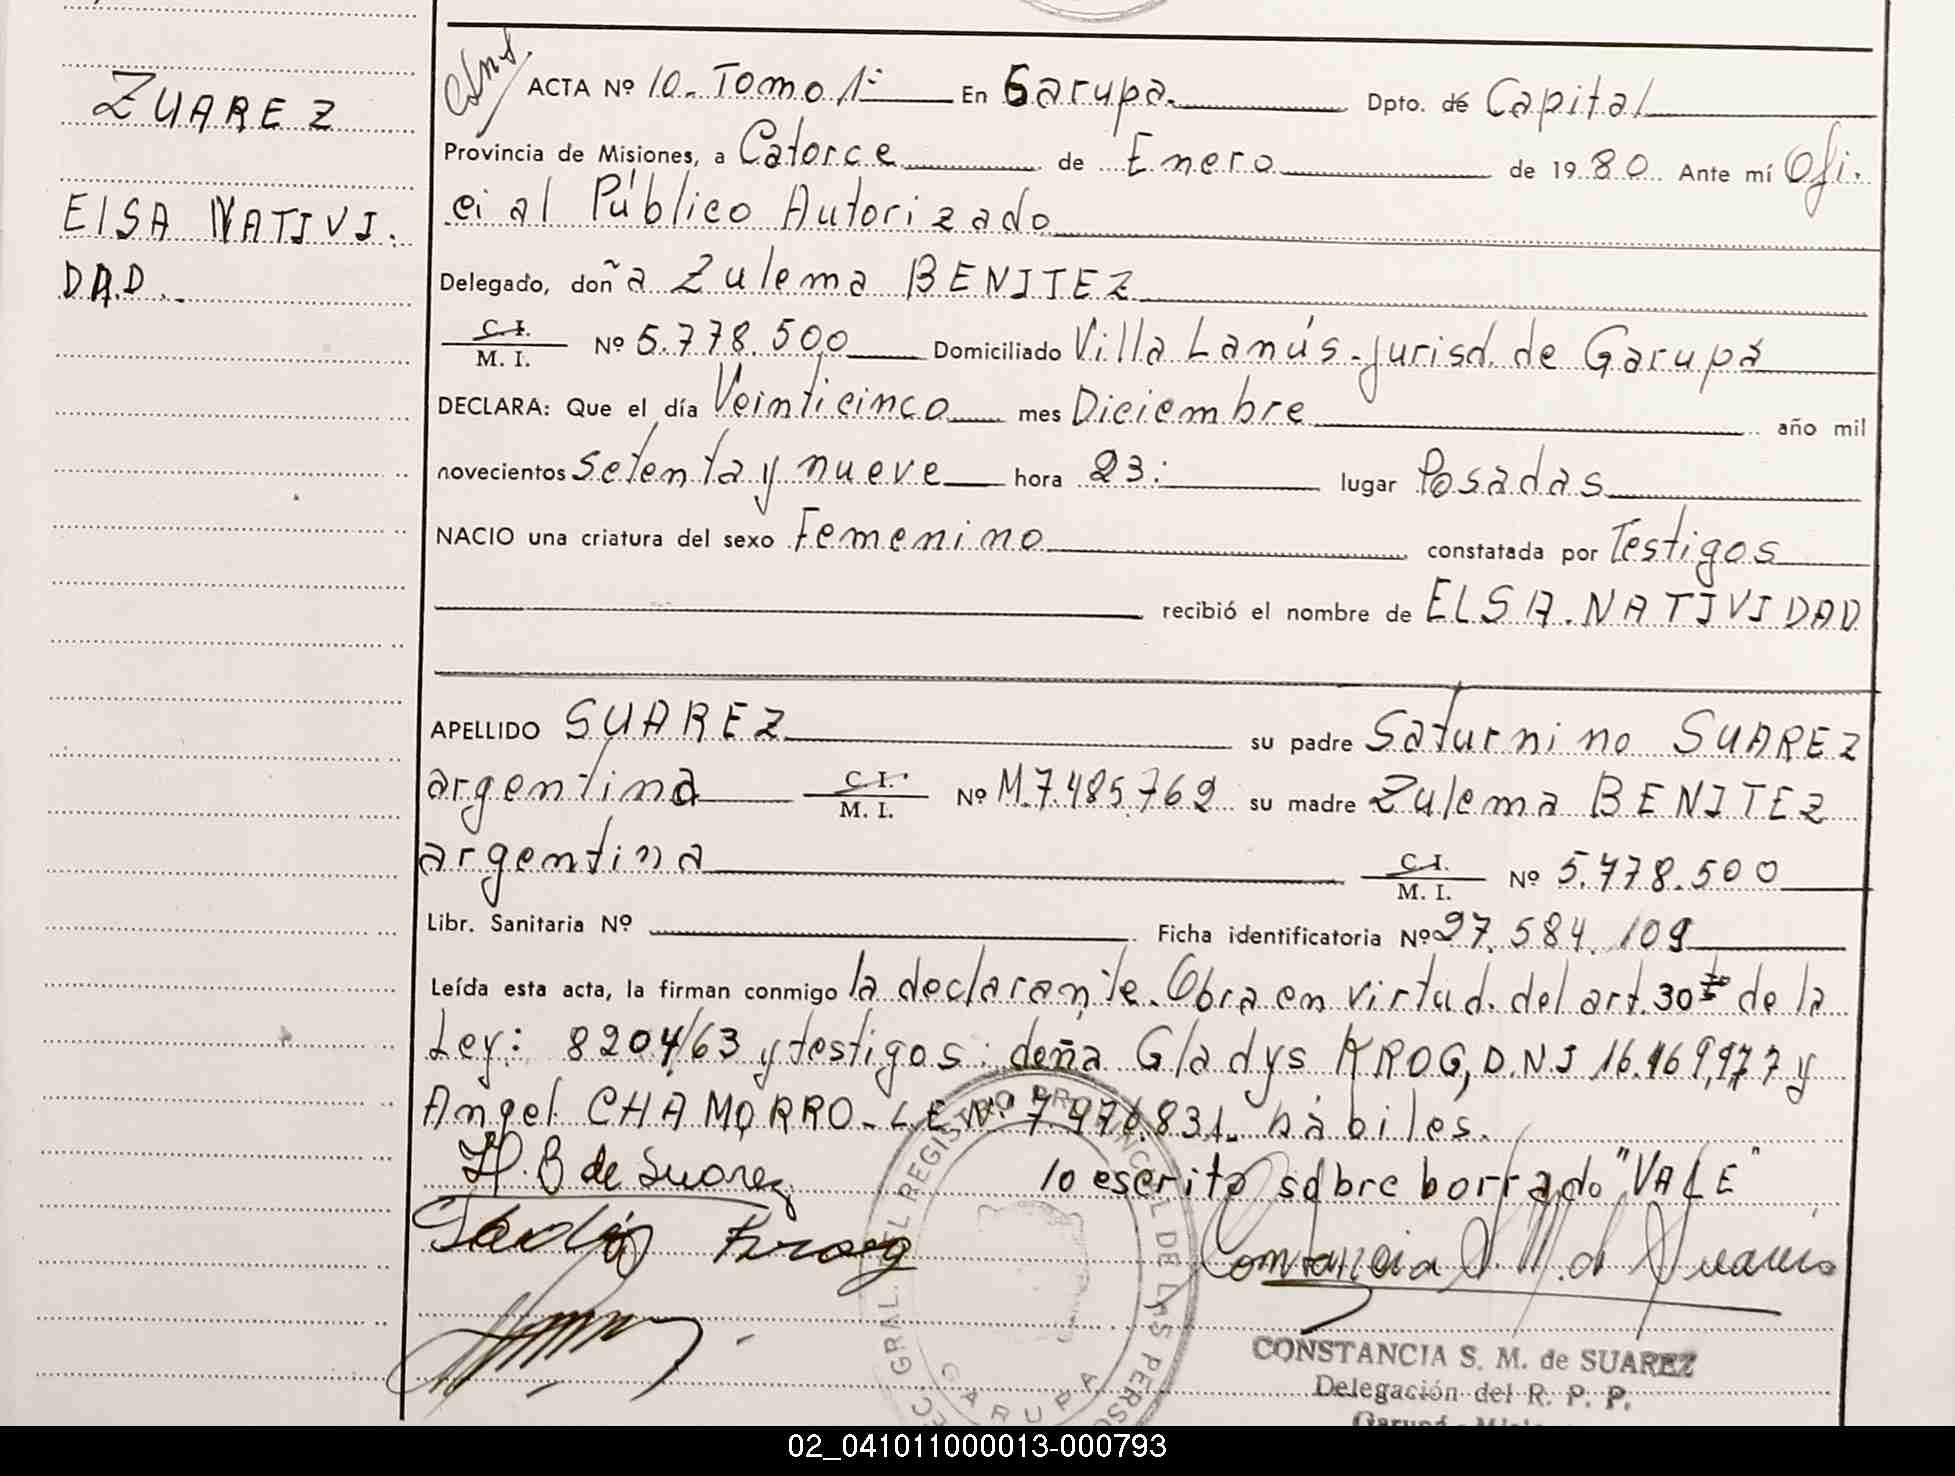 ZUAREZ
ElSA NATIVI.
DAD..
ACTA Nº 10.. Tomo 1º En Garupa. Dpto. de Capital
Provincia de Misiones, a Catorce de Enero de 1980. Ante mí Ofi.
cial Público Autorizado
Delegado, doña Zulema BENITEZ
C. I.
M. I. Nº 5.778.500 Domiciliado Villa Lanús-jurisd. de Garupá
DECLARA: Que el día Veinticinco mes Diciembre año mil
novecientos setenta y nueve hora 23: lugar Posadas
NACIO una criatura del sexo Femenino constatada por Testigos
recibió el nombre de ELSA. NATIVIDAD
APELLIDO SUAREZ su padre Saturnino SUAREZ
argentina C. I.
M. I. Nº M.7.485.762 su madre Zulema BENITEZ
argentina C. I.
M. I. Nº 5.778.500
Libr. Sanitaria Nº Ficha identificatoria Nº 27.584.109
Leída esta acta, la firman conmigo la declarante. Obra en virtud. del art. 30 de la
Ley: 8204/63 y testigos: doña Gladys KROG, D.N.I 16.169,177 y
Angel CHAMORRO - L.E Nº 7.976.831. hàbiles.
Z. B de Suarez lo escrito sobre borrado "VALE"
Constancia S. M. d Suarez
CONSTANCIA S. M. de SUAREZ
Delegación del R. P. P.
GRAL. DEL REGISTRO PROVINCIAL DE LAS PERSO
GARUPA
02_041011000013-000793